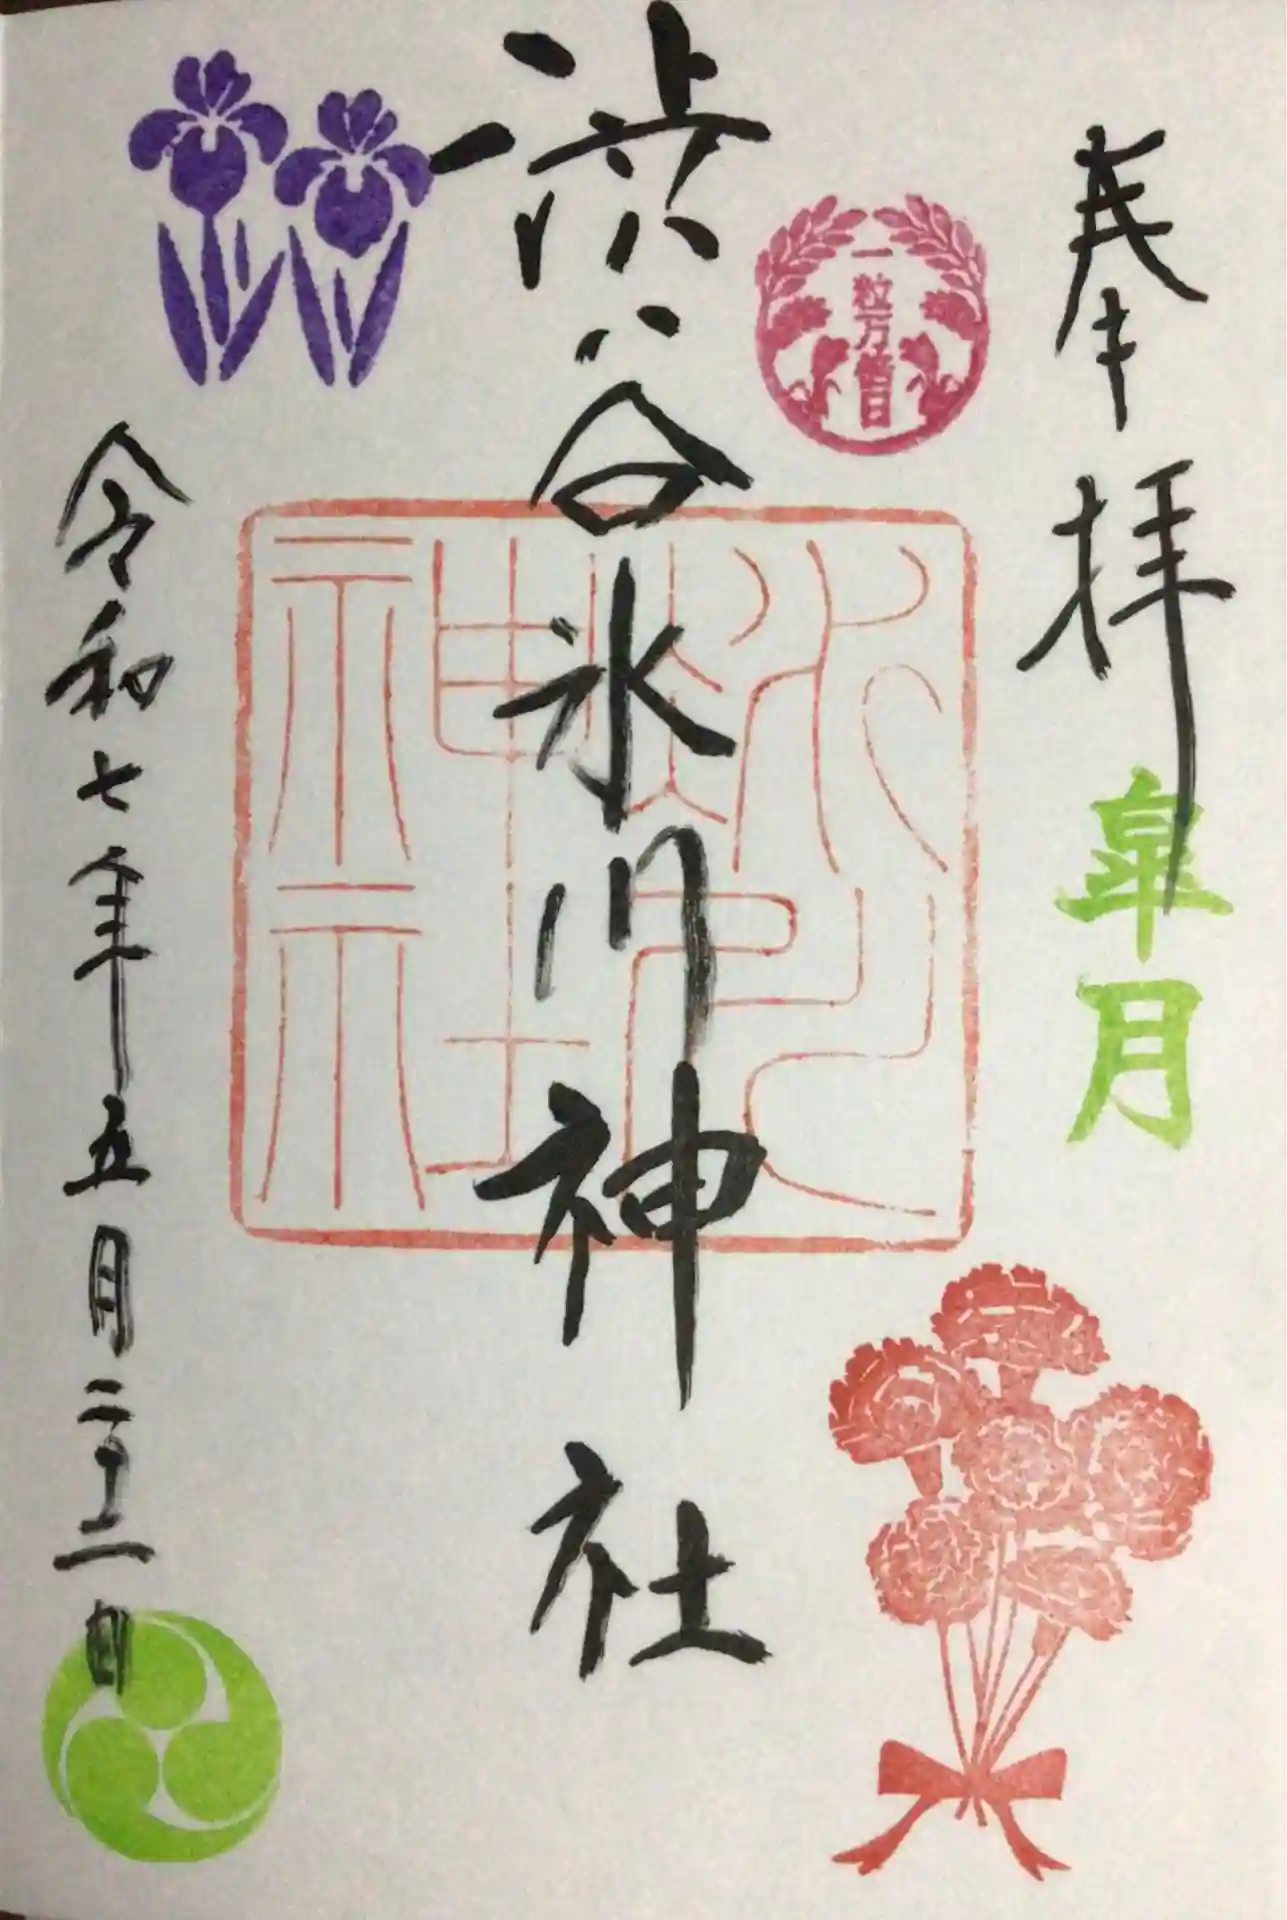 奉拝
皐月
一粒万倍日
渋谷氷川神社
氷川
神社
令和七年五月二十二日